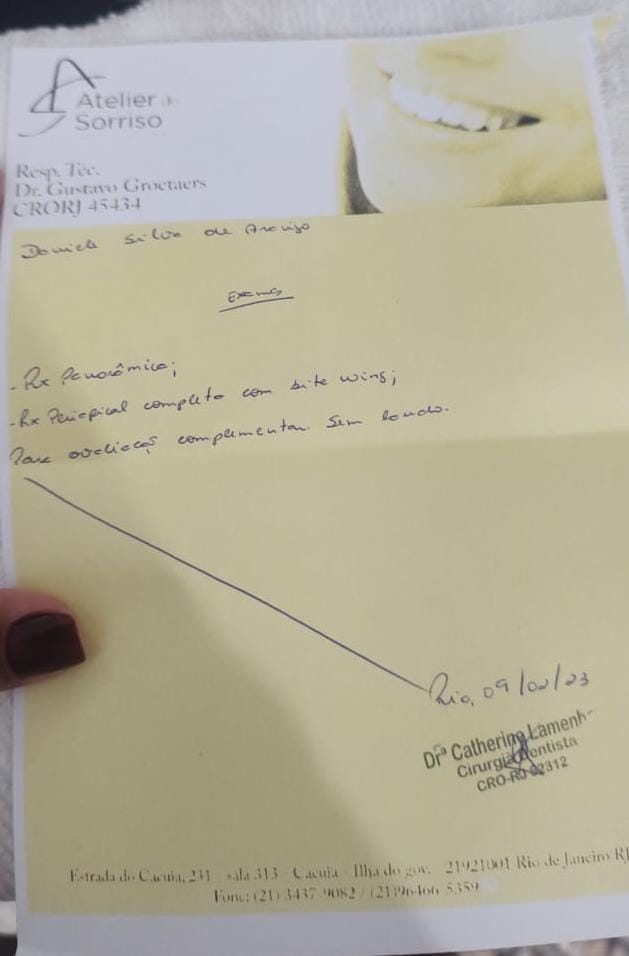 Atelier do
Sorriso
Resp. Téc.
Dr. Gustavo Groetaers
CRORJ 45434
Daniele Silva de Araujo
Exames
- Rx Panorâmica;
- Rx Periapical completo com bite wing;
Para avaliação complementar. Sem laudo.
Rio, 09/02/23
Drª Catherine Lamenh
Cirurgiã Dentista
CRO-RJ
Estrada do Cacuia, 231 - sala 313 - Cacuia - Ilha do gov. 21921001 Rio de Janeiro RJ
Fone: (21) 3437-9082 / (21)96466-5359